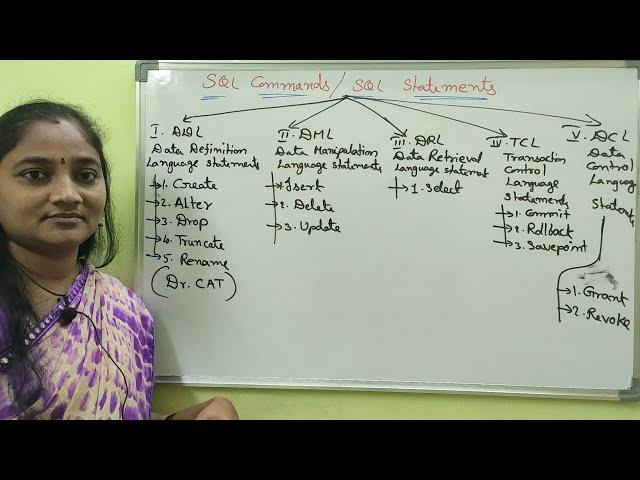 SQL Commands / SQL Statements
I. DDL
Data Definition
Language Statements
1. Create
2. Alter
3. Drop
4. Truncate
5. Rename
(Dr. CAT)
II. DML
Data Manipulation
Language Statements
1. Insert
2. Delete
3. Update
III. DRL
Data Retrieval
Language statement
1. Select
IV. TCL
Transaction
Control
Language
Statements
1. Commit
2. Rollback
3. Savepoint
V. DCL
Data
Control
Language
Statents
1. Grant
2. Revoke